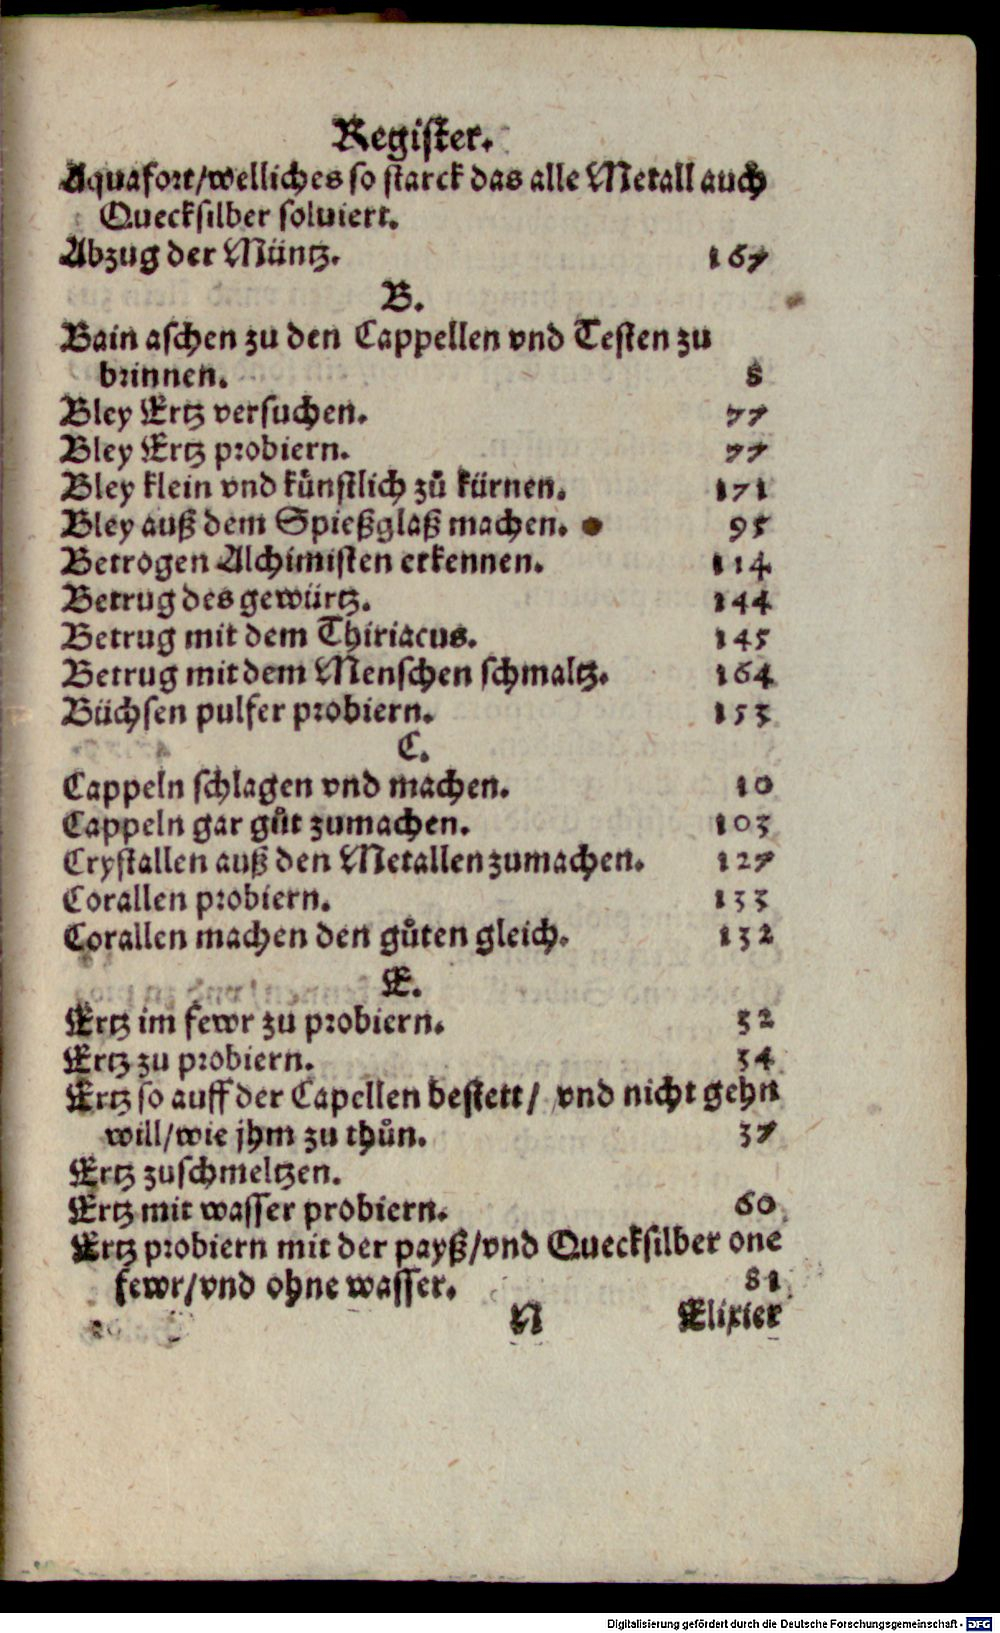 Register.
Aquafort/welliches so starck das alle Metall auch
Quecksilber soluiert.
Abzug der Müntz. 167
B.
Bain aschen zu den Cappellen vnd Testen zu
brinnen. 8
Bley Ertz versuchen. 77
Bley Ertz probiern. 77
Bley klein vnd kůnstlich zů kürnen. 171
Bley auß dem Spießglaß machen. 95
Betrogen Alchimisten erkennen. 114
Betrug des gewürtz. 144
Betrug mit dem Thiriacus. 145
Betrug mit dem Menschen schmaltz. 164
Büchsen pulfer probiern. 153
C.
Cappeln schlagen vnd machen. 10
Cappeln gar gůt zumachen. 103
Crystallen auß den Metallen zumachen. 127
Corallen probiern. 133
Corallen machen den gůten gleich. 132
E.
Ertz im fewr zu probiern. 32
Ertz zu probiern. 34
Ertz so auff der Capellen bestett/ vnd nicht gehn
will/wie jhm zu thůn. 37
Ertz zuschmeltzen.
Ertz mit wasser probiern. 60
Ertz probiern mit der payß/vnd Quecksilber one
fewr/vnd ohne wasser. 81
N Elixier
Digitalisierung gefördert durch die Deutsche Forschungsgemeinschaft - DFG